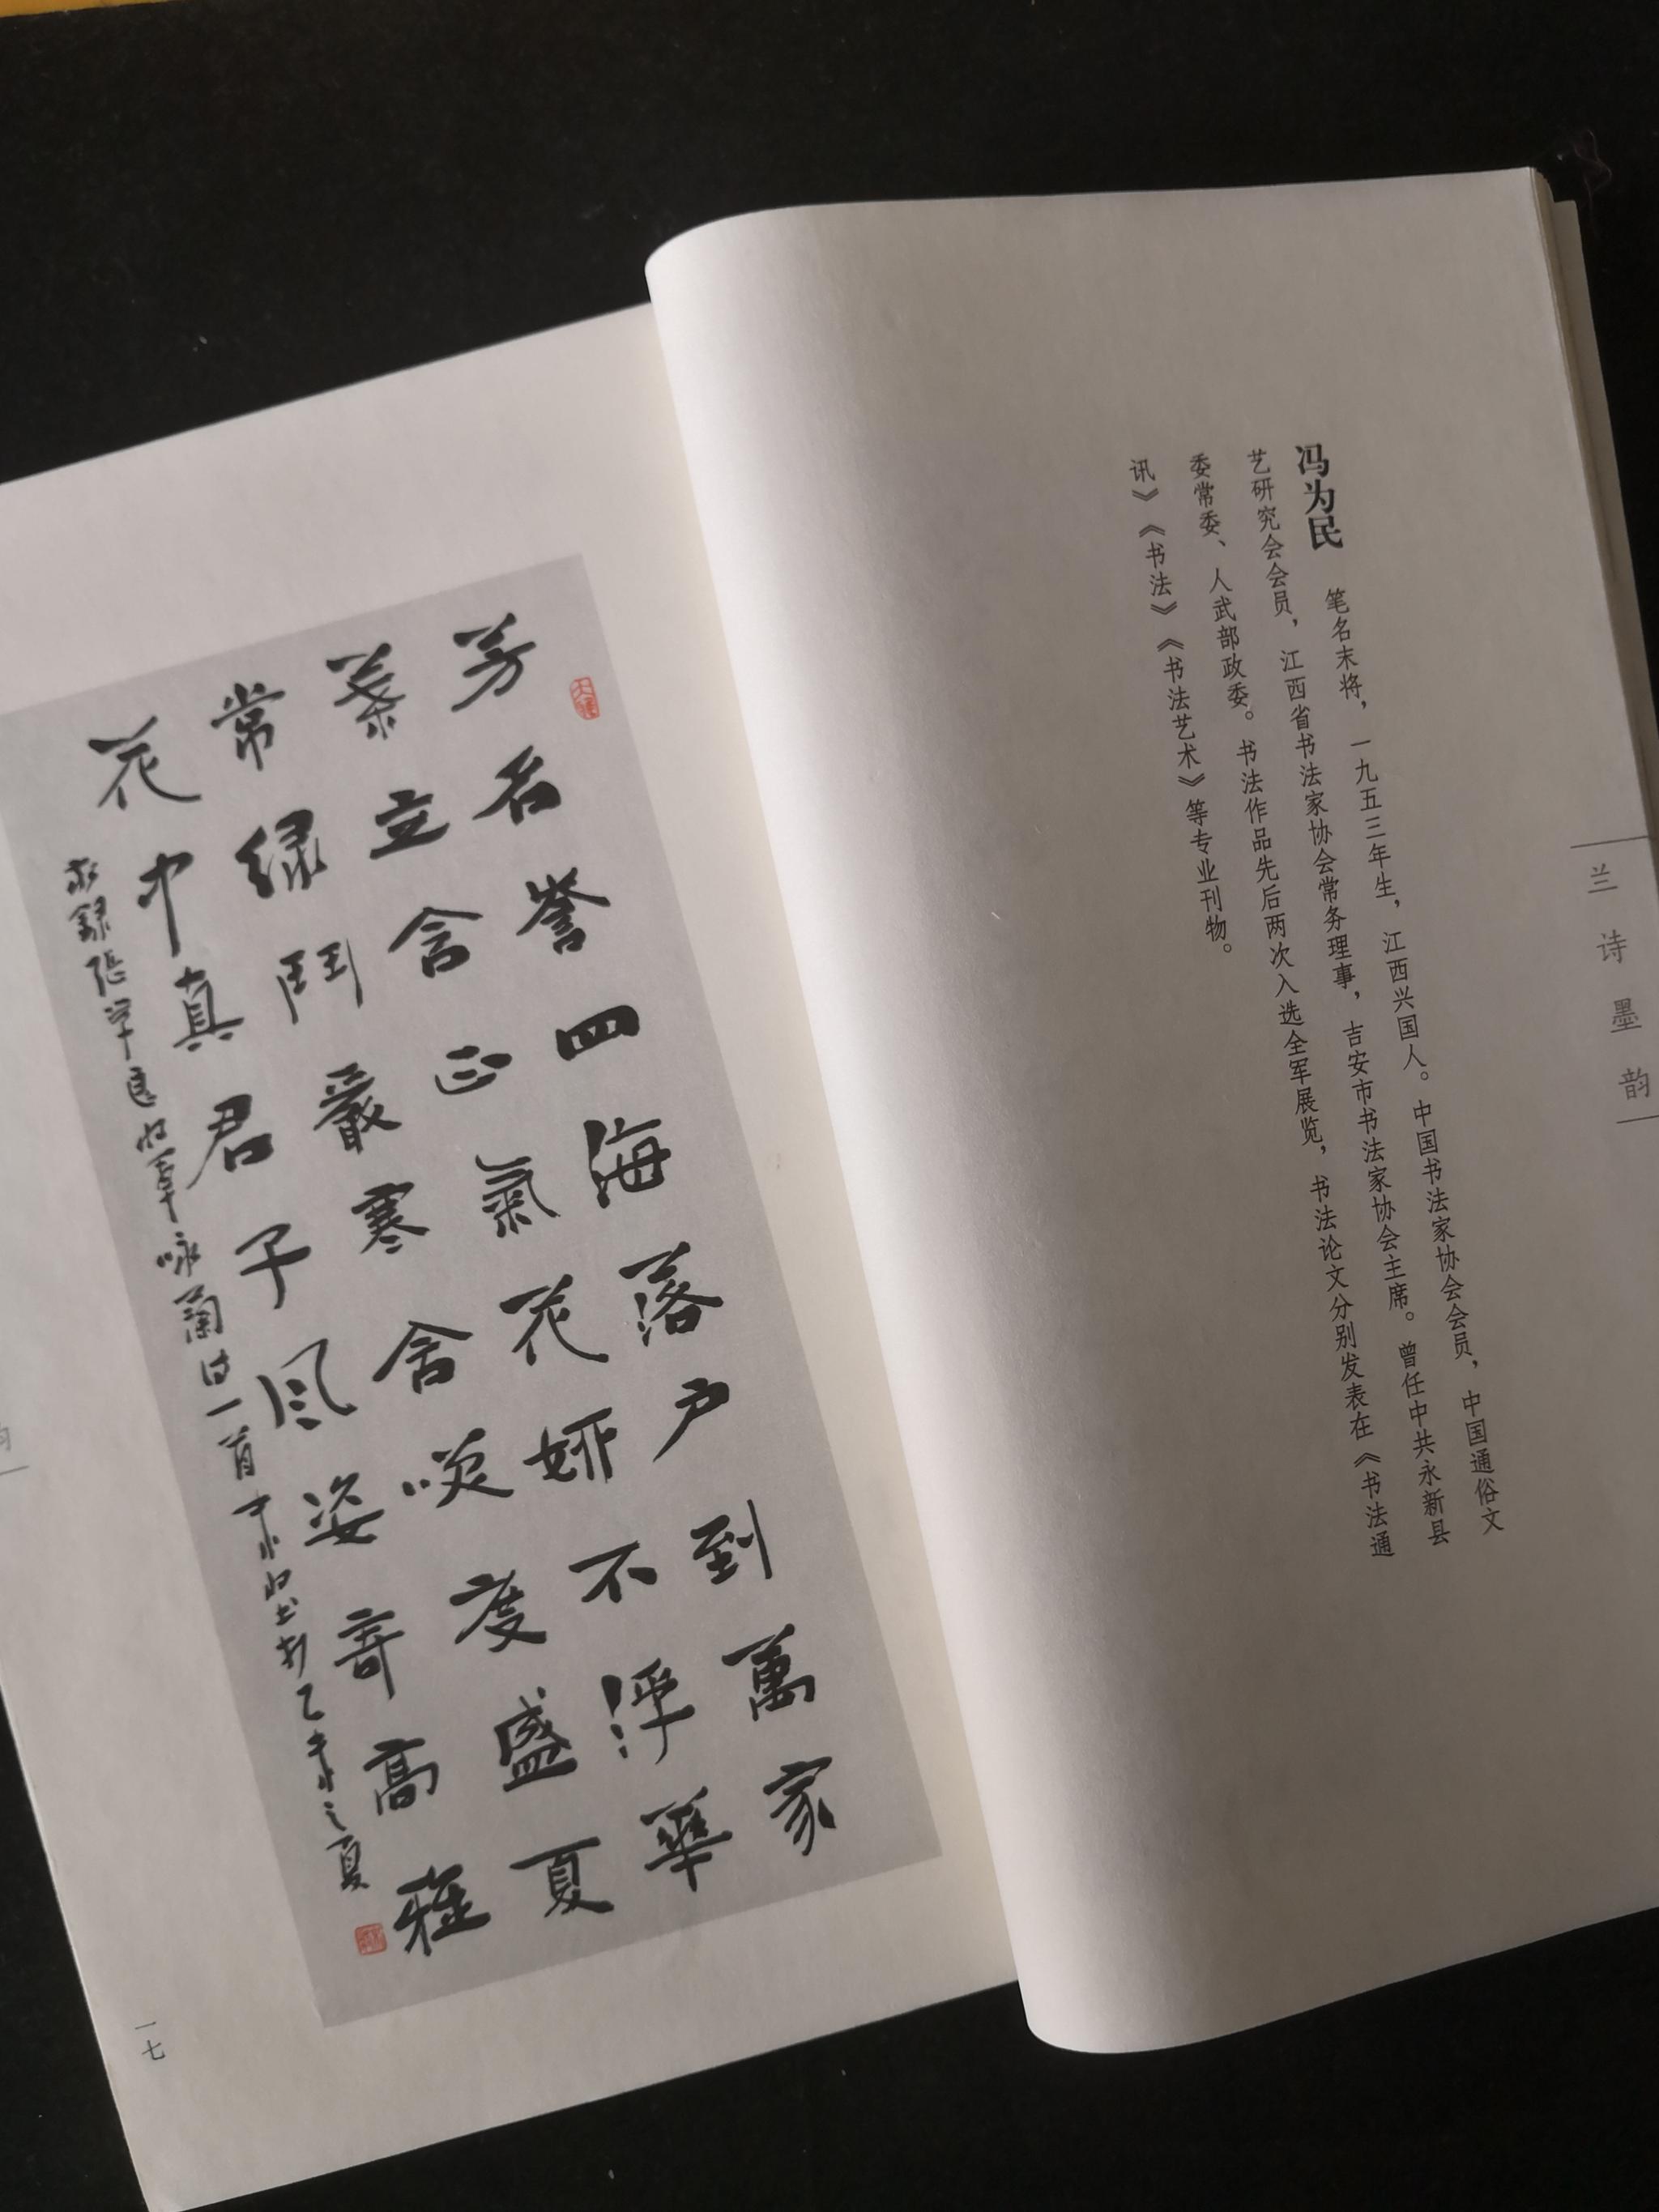 兰诗墨韵
冯为民 笔名末将，一九五三年生，江西兴国人。中国书法家协会会员，中国通俗文
艺研究会会员，江西省书法家协会常务理事，吉安市书法家协会主席。曾任中共永新县
委常委、人武部政委。书法作品先后两次入选全军展览，书法论文分别发表在《书法通
讯》《书法》《书法艺术》等专业刊物。
芳名誉四海落户到萬家
葉立含正氣花妍不浮華
常绿鬥嚴寒含笑度盛夏
花中真君子风姿寄高雅
咏蘭诗一首 乙未之夏
一七